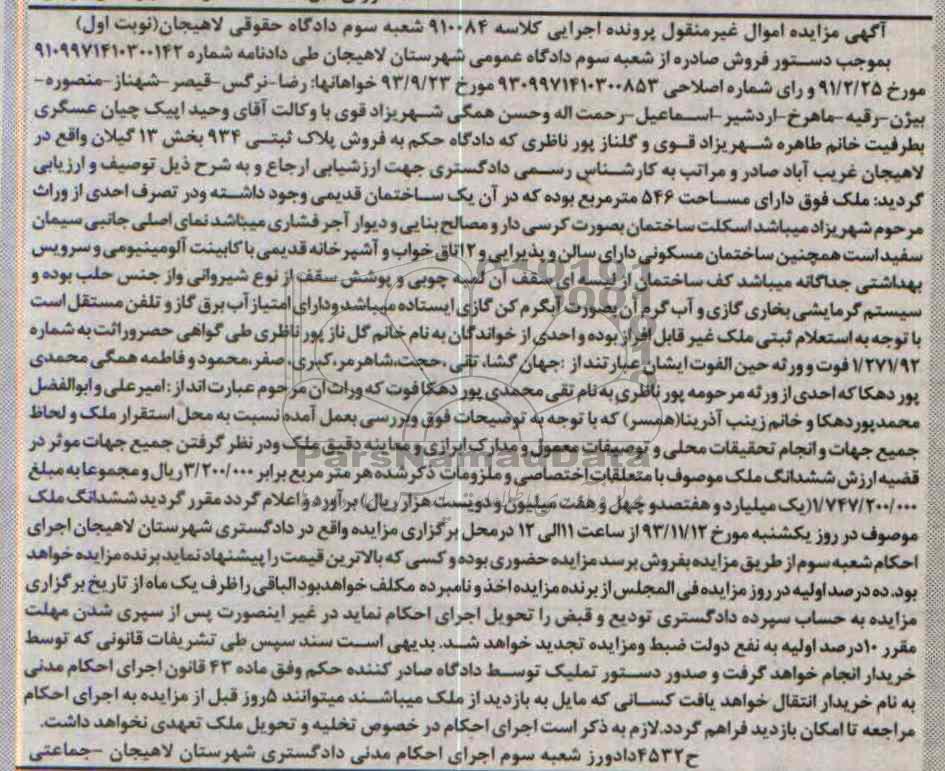 آگهی مزایده اموال غیرمنقول پرونده اجرایی کلاسه ۹۱۰۰۸۴ شعبه سوم دادگاه حقوقی لاهیجان(نوبت اول)
بموجب دستور فروش صادره از شعبه سوم دادگاه عمومی شهرستان لاهیجان طی دادنامه شماره ۹۱۰۹۹۷۱۴۱۰۳۰۰۱۴۲
مورخ ۹۱/۲/۲۵ و رای شماره اصلاحی ۹۳۰۹۹۷۱۴۱۰۳۰۰۸۵۳ مورخ ۹۳/۹/۲۳ خواهانها: رضا-نرگس-قیصر-شهناز-منصوره-
بیژن-رقیه-ماهرخ-اردشیر-اسماعیل-رحمت اله وحسن همگی شهریزاد قوی با وکالت آقای وحید اپیک چیان عسگری
بطرفیت خانم طاهره شهریزاد قوی و گلناز پور ناظری که دادگاه حکم به فروش پلاک ثبتی ۹۳۴ بخش ۱۳ گیلان واقع در
لاهیجان غریب آباد صادر و مراتب به کارشناس رسمی دادگستری جهت ارزشیابی ارجاع و به شرح ذیل توصیف و ارزیابی
گردید: ملک فوق دارای مساحت ۵۴۶ مترمربع بوده که در آن یک ساختمان قدیمی وجود داشته ودر تصرف احدی از وراث
مرحوم شهریزاد میباشد اسکلت ساختمان بصورت کرسی دار و مصالح بنایی و دیوار آجر فشاری میباشد نمای اصلی جانبی سیمان
سفید است همچنین ساختمان مسکونی دارای سالن و پذیرایی و ۲اتاق خواب و آشپرخانه قدیمی با کابینت آلومینیومی و سرویس
بهداشتی جداگانه میباشد کف ساختمان از لیسه ای سقف آن لمبه چوبی و پوشش سقف از نوع شیروانی واز جنس حلب بوده و
سیستم گرمایشی بخاری گازی و آب گرم آن بصورت آبگرم کن گازی ایستاده میباشد ودارای امتیاز آب برق گاز و تلفن مستقل است
با توجه به استعلام ثبتی ملک غیر قابل افراز بوده و احدی از خواندگان به نام خانم گل ناز پور ناظری طی گواهی حصروراثت به شماره
۱/۲۷۱/۹۲ فوت و ورثه حین الفوت ایشان عبارتند از :جهان گشا، تقی، حجت،شاهرمر،کبری، صفر،محمود و فاطمه همگی محمدی
پور دهکا که احدی از ورثه مرحومه پور ناظری به نام تقی محمدی پور دهکا فوت که وراث آن مرحوم عبارت انداز: امیرعلی و ابوالفضل
محمدپور دهکا و خانم زینب آذرینا(همسر) که با توجه به توضیحات فوق وبررسی بعمل آمده نسبت به محل استقرار ملک و لحاظ
جمیع جهات و انجام تحقیقات محلی و توصیفات معمول و مدارک ابرازی و معاینه دقیق ملک ودر نظر گرفتن جمیع جهات موثر در
قضیه ارزش ششدانگ ملک موصوف با متعلقات اختصاصی و ملزومات ذکر شده هر متر مربع برابر ۳/۲۰۰/۰۰۰ریال و مجموعا به مبلغ
۱/۷۴۷/۲۰۰/۰۰۰(یک میلیارد و هفتصدو چهل و هفت میلیون و دویست هزار ریال) برآورد و اعلام گردد مقرر گردید ششدانگ ملک
موصوف در روز یکشنبه مورخ ۹۳/۱۱/۱۲ از ساعت ۱۱الی ۱۲ درمحل برگزاری مزایده واقع در دادگستری شهرستان لاهیجان اجرای
احکام شعبه سوم از طریق مزایده بفروش برسد مزایده حضوری بوده و کسی که بالاترین قیمت را پیشنهاد نماید برنده مزایده خواهد
بود. ده درصد اولیه در روز مزایده فی المجلس از برنده مزایده اخذ و نامبرده مکلف خواهدبود الباقی را ظرف یک ماه از تاریخ برگزاری
مزایده به حساب سپرده دادگستری تودیع و قبض را تحویل اجرای احکام نماید در غیر اینصورت پس از سپری شدن مهلت
مقرر ۱۰درصد اولیه به نفع دولت ضبط ومزایده تجدید خواهد شد. بدیهی است سند سپس طی تشریفات قانونی که توسط
خریدار انجام خواهد گرفت و صدور دستور تملیک توسط دادگاه صادر کننده حکم وفق ماده ۴۳ قانون اجرای احکام مدنی
به نام خریدار انتقال خواهد یافت کسانی که مایل به بازدید از ملک میباشند میتوانند ۵روز قبل از مزایده به اجرای احکام
مراجعه تا امکان بازدید فراهم گردد.لازم به ذکر است اجرای احکام در خصوص تخلیه و تحویل ملک تعهدی نخواهد داشت.
ح۴۵۳۲دادورز شعبه سوم اجرای احکام مدنی دادگستری شهرستان لاهیجان -جماعتی
ParsNamadData